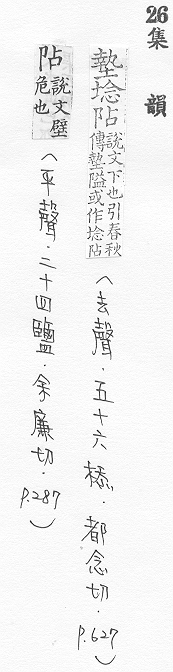 26集韻
墊埝阽說文下也引春秋傳墊隘或作埝阽(去聲．五十六㮇．都念切．p.627)
阽說文壁危也(平聲．二十四鹽．余廉切．p.287)